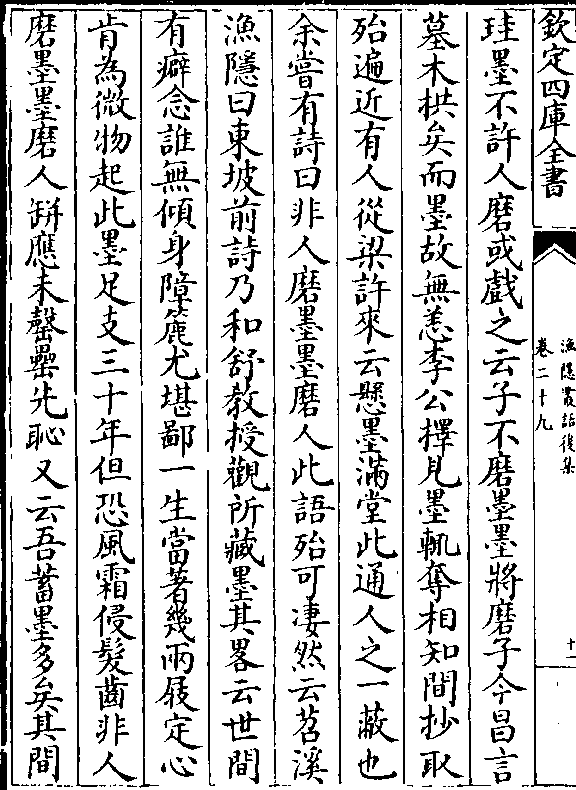 欽定四庫全書
漁隠叢話後集
卷二十九
十一
珪墨不許人磨或戲之云子不磨墨墨將磨子今昌言
墓木栱矣而墨故無恙李公擇見墨輒奪相知間抄取
殆遍近有人從梁許來云懸墨滿堂此通人之一蔽也
余嘗有詩曰非人磨墨墨磨人此語殆可凄然云苕溪
漁隱曰東坡前詩乃和舒教授觀所藏墨其畧云世間
有癖念誰無傾身障簏尤堪鄙一生當著幾兩屐定心
肯為微物起此墨足支三十年但恐風霜侵髮齒非人
磨墨墨磨人缾應未罄罍先恥又云吾蓄墨多矣其間